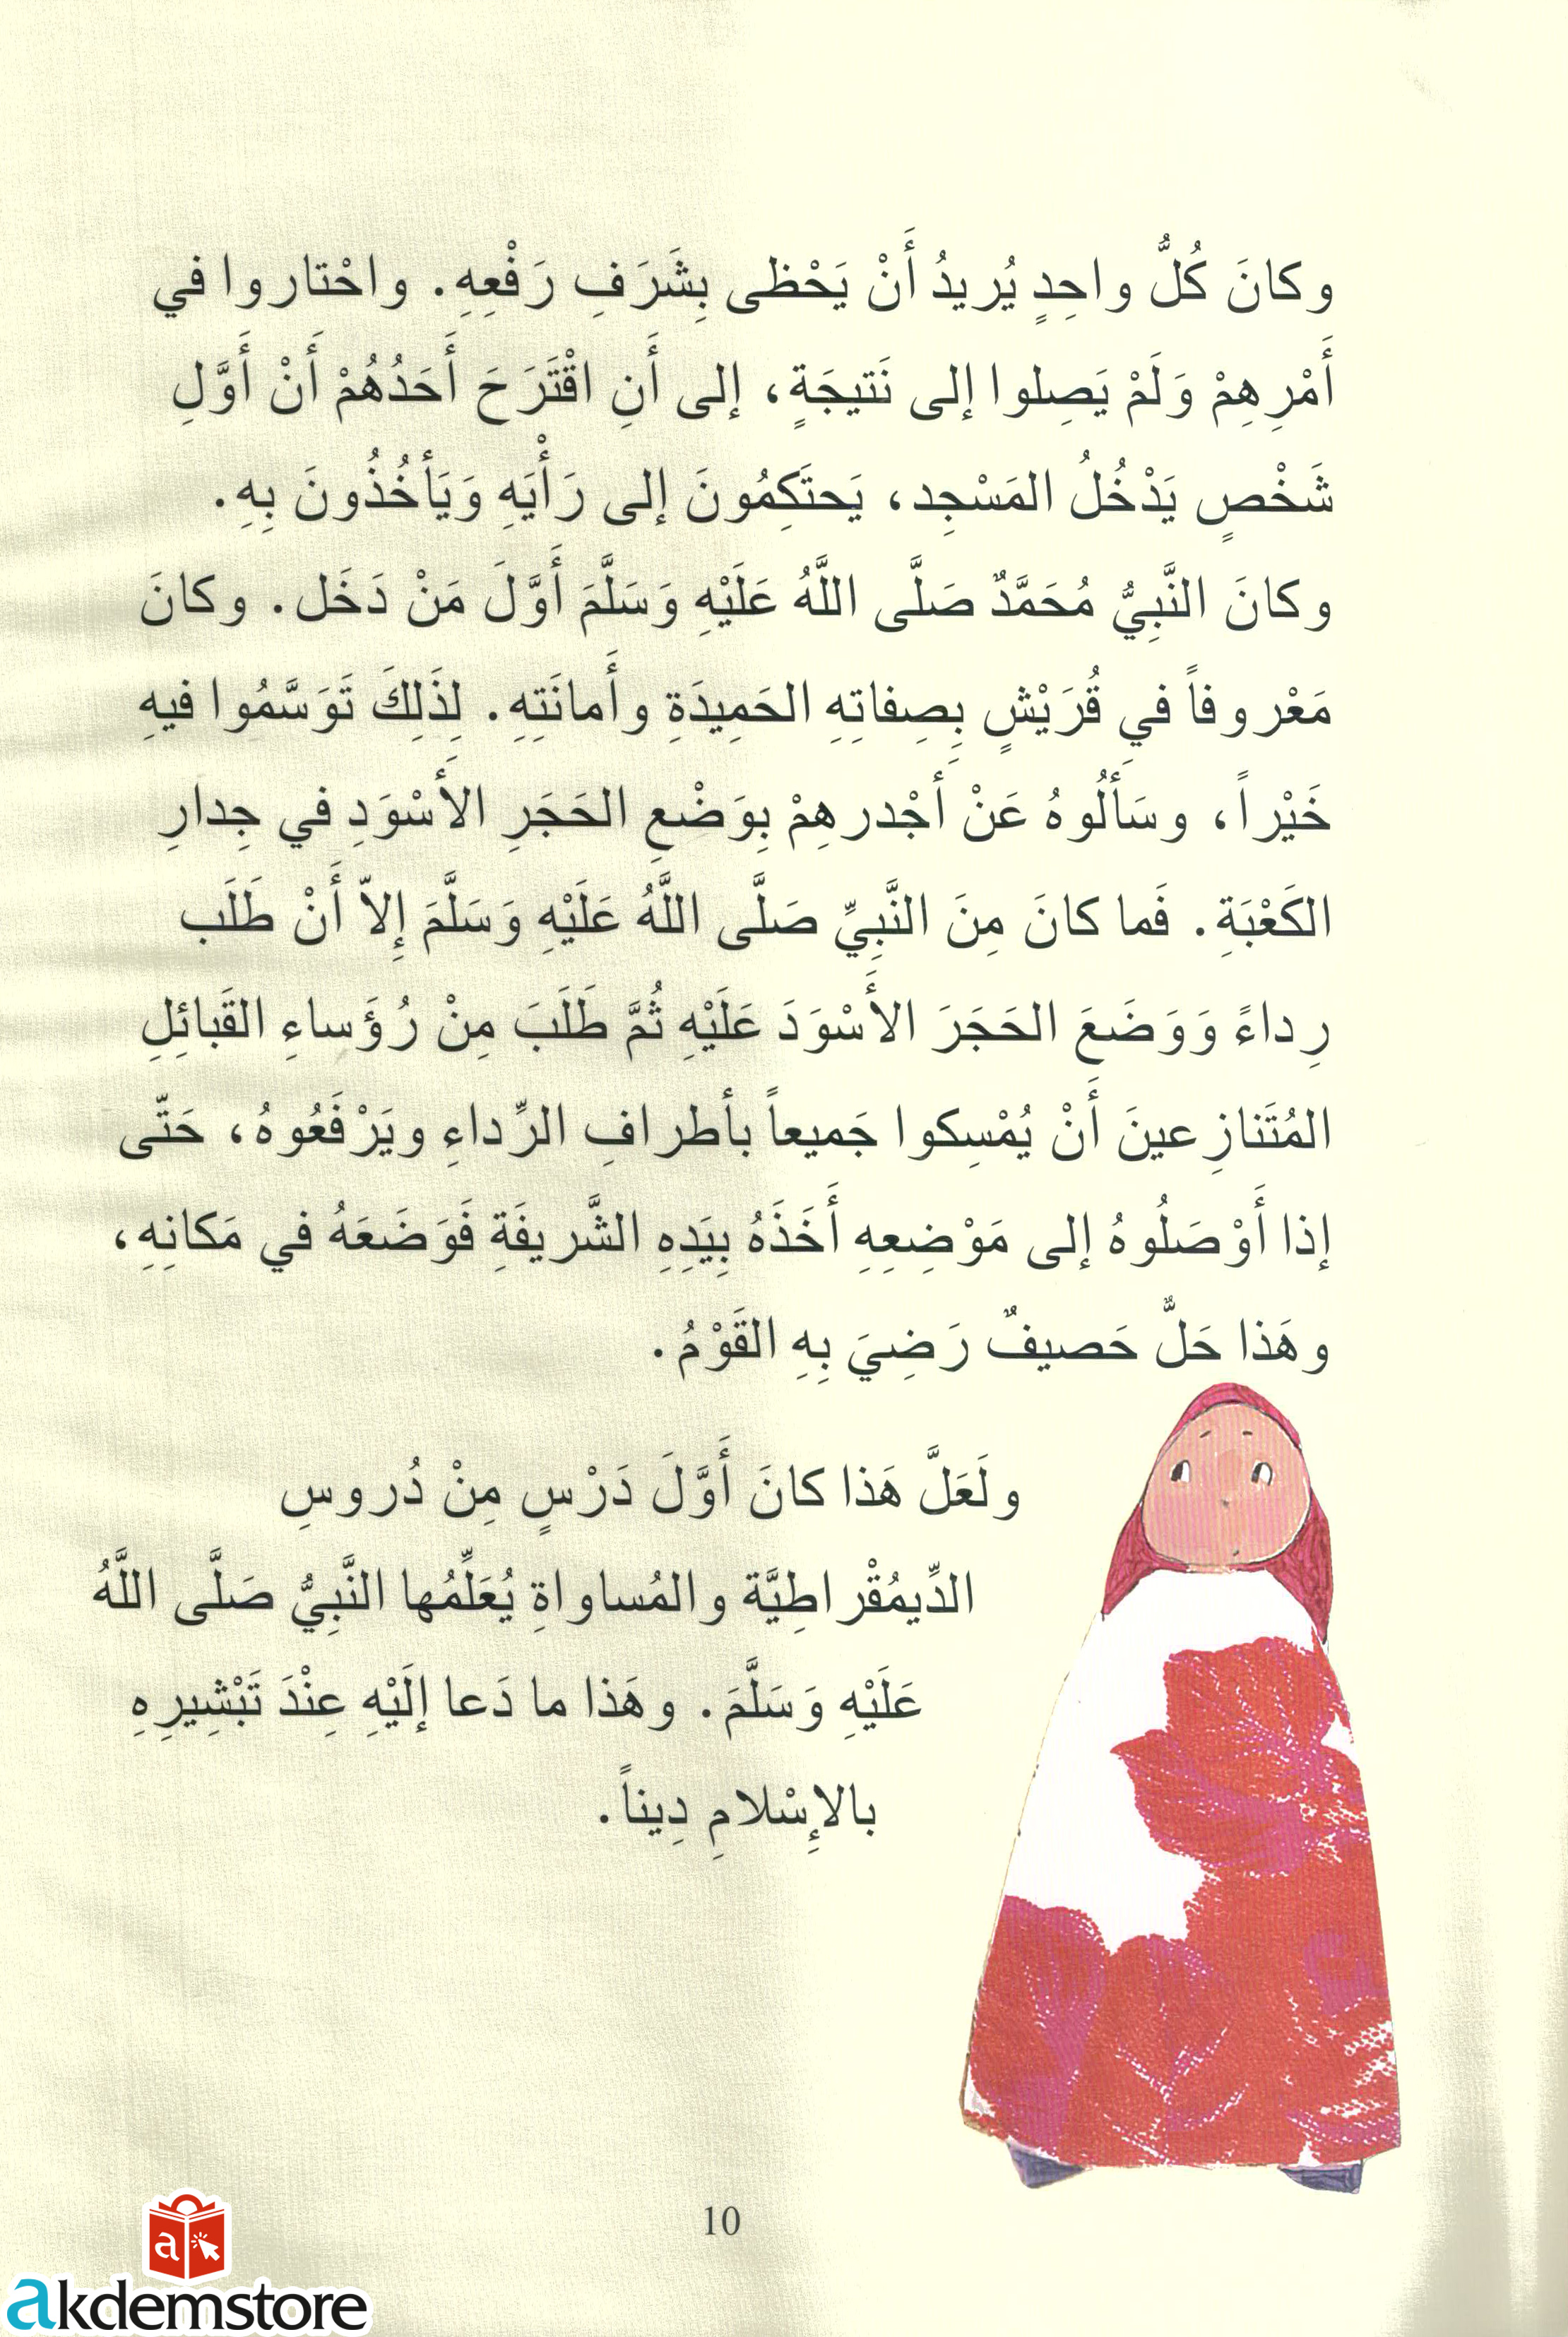 وكانَ كُلُّ واحِدٍ يُريدُ أَنْ يَحْظى بِشَرَفِ رَفْعِهِ. واحْتاروا في
أَمْرِهِمْ وَلَمْ يَصِلوا إلى نَتيجَةٍ، إلى أَنِ اقْتَرَحَ أَحَدُهُمْ أَنْ أَوَّلِ
شَخْصٍ يَدْخُلُ المَسْجِد، يَحتَكِمُونَ إلى رَأْيَهِ وَيَأخُذُونَ بِهِ.
وكانَ النَّبِيُّ مُحَمَّدٌ صَلَّى اللَّهُ عَلَيْهِ وَسَلَّمَ أَوَّلَ مَنْ دَخَل. وكانَ
مَعْروفاً في قُرَيْشٍ بِصِفاتِهِ الحَمِيدَةِ وأَمانَتِهِ. لِذَلِكَ تَوَسَّمُوا فيهِ
خَيْراً، وسَأَلُوهُ عَنْ أجْدرِهِمْ بِوَضْعِ الحَجَرِ الأَسْوَدِ في جِدارِ
الكَعْبَةِ. فَما كانَ مِنَ النَّبِيِّ صَلَّى اللَّهُ عَلَيْهِ وَسَلَّمَ إِلاّ أَنْ طَلَب
رِداءً وَوَضَعَ الحَجَرَ الأَسْوَدَ عَلَيْهِ ثُمَّ طَلَبَ مِنْ رُؤَساءِ القَبائِلِ
المُتَنازِعينَ أَنْ يُمْسِكوا جَميعاً بأطرافِ الرِّداءِ ويَرْفَعُوهُ، حَتّى
إذا أَوْصَلُوهُ إلى مَوْضِعِهِ أَخَذَهُ بِيَدِهِ الشَّريفَةِ فَوَضَعَهُ في مَكانِهِ،
وهَذا حَلٌّ حَصيفٌ رَضِيَ بِهِ القَوْمُ.
ولَعَلَّ هَذا كانَ أَوَّلَ دَرْسٍ مِنْ دُروسِ
الدِّيمُقْراطِيَّة والمُساواةِ يُعَلِّمُها النَّبِيُّ صَلَّى اللَّهُ
عَلَيْهِ وَسَلَّمَ. وهَذا ما دَعا إلَيْهِ عِنْدَ تَبْشِيرِهِ
بالإِسْلامِ دِيناً.
10
a
akdemstore